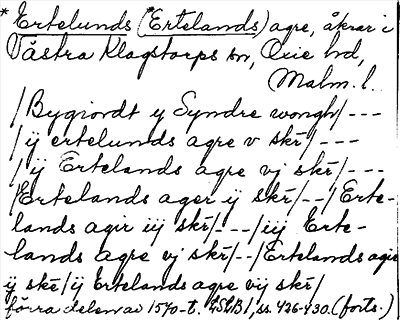 * Ertelunds (*Ertelands) agre, åkrar i
Västra Klagstorps sn, Oxie hd,
Malm. l.
/Bygiordt y Syndre wongh/ - - -
/ij ertelunds agre v skr̄/ - - -
/ij Ertelands agre vj skr̄/ - - -
/Ertelands ager ij skr̄/ - - /Erte-
lands agir iij skr̄/ - - - /iij Erte-
lands agre vj skr̄/ - - /Ertelands agir
ij skr̄/ij Ertelands agre vij skr̄/
förra delen av 1570-t. LSLB1, ss. 426-430. (forts.)